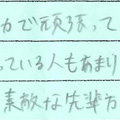 力で頑張って
っている人もあまり
素敵な先輩方